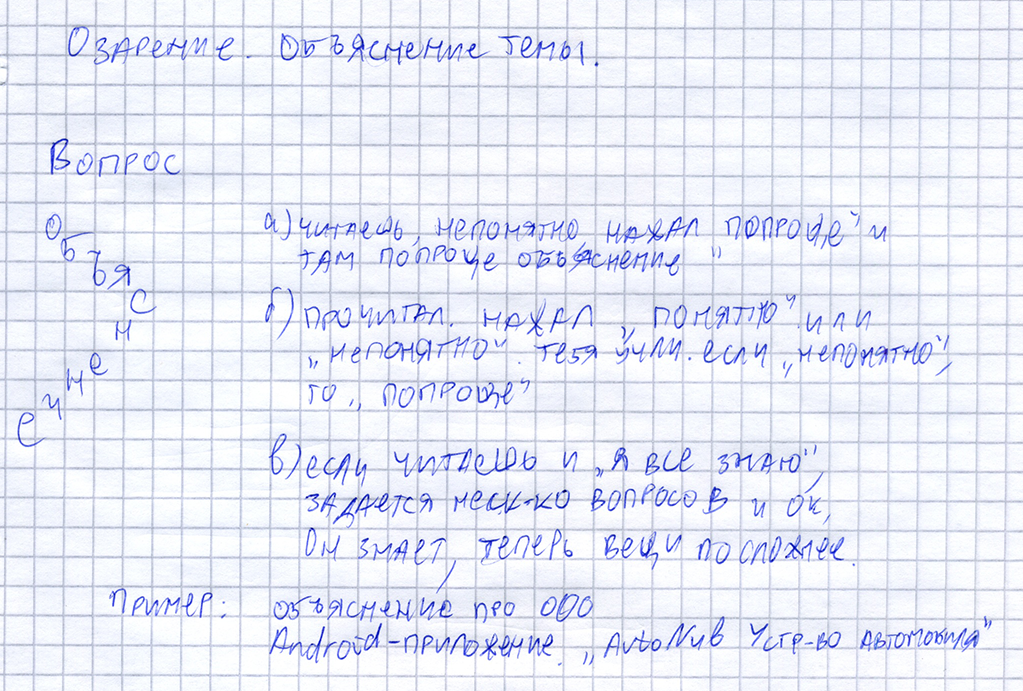 Озарение. Объяснение темы.
Вопрос
Объяснение
а) читаешь, непонятно, нажал попроще" и
там попроще объяснение "
б) прочитал. нажал „понятно" или
„непонятно". тебя учли. если „непонятно",
то „попроще"
в) если читаешь и „я все знаю",
задается неск-ко вопросов и ок,
он знает, теперь вещи посложнее.
Пример: объяснение про ООО
Android-приложение. „AutoNub Устр-во автомобиля"